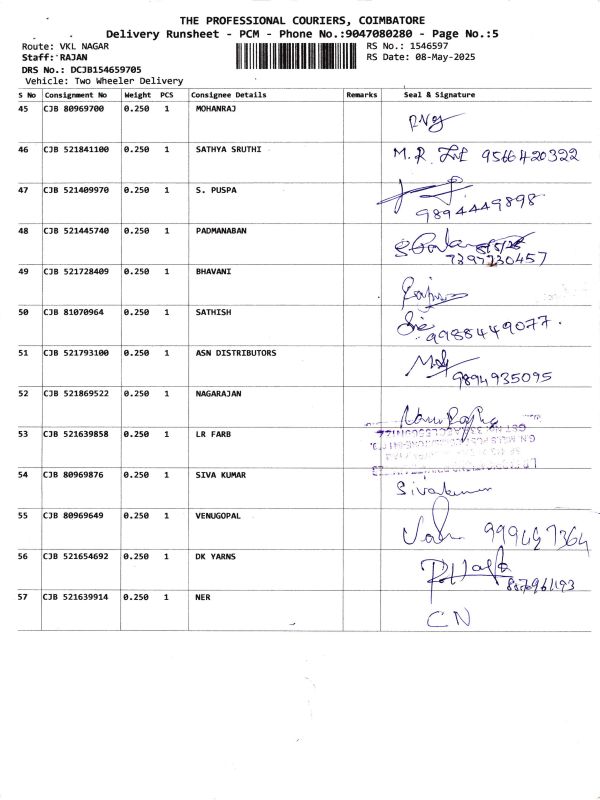 THE PROFESSIONAL COURIERS, COIMBATORE
Delivery Runsheet - PCM - Phone No.:9047080280 - Page No.:5
Route: VKL NAGAR RS No.: 1546597
Staff: RAJAN RS Date: 08-May-2025
DRS No.: DCJB154659705
Vehicle: Two Wheeler Delivery
S No Consignment No Weight PCS Consignee Details Remarks Seal & Signature
45 CJB 80969700 0.250 1 MOHANRAJ
46 CJB 521841100 0.250 1 SATHYA SRUTHI M.R. 9566420322
47 CJB 521409970 0.250 1 S. PUSPA
9894449898
48 CJB 521445740 0.250 1 PADMANABAN 8/5/25
7397730457
49 CJB 521728409 0.250 1 BHAVANI
50 CJB 81070964 0.250 1 SATHISH
9988449077.
51 CJB 521793100 0.250 1 ASN DISTRIBUTORS
9894935095
52 CJB 521869522 0.250 1 NAGARAJAN
53 CJB 521639858 0.250 1 LR FARB
54 CJB 80969876 0.250 1 SIVA KUMAR Sivakumar
55 CJB 80969649 0.250 1 VENUGOPAL
56 CJB 521654692 0.250 1 DK YARNS
57 CJB 521639914 0.250 1 NER CN